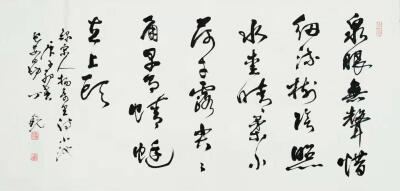 泉眼無聲惜
細流樹陰照
水愛晴柔小
荷才露尖〻
角早有蜻蜓
立上頭
録宋人楊萬里詩小池
庚子初夏